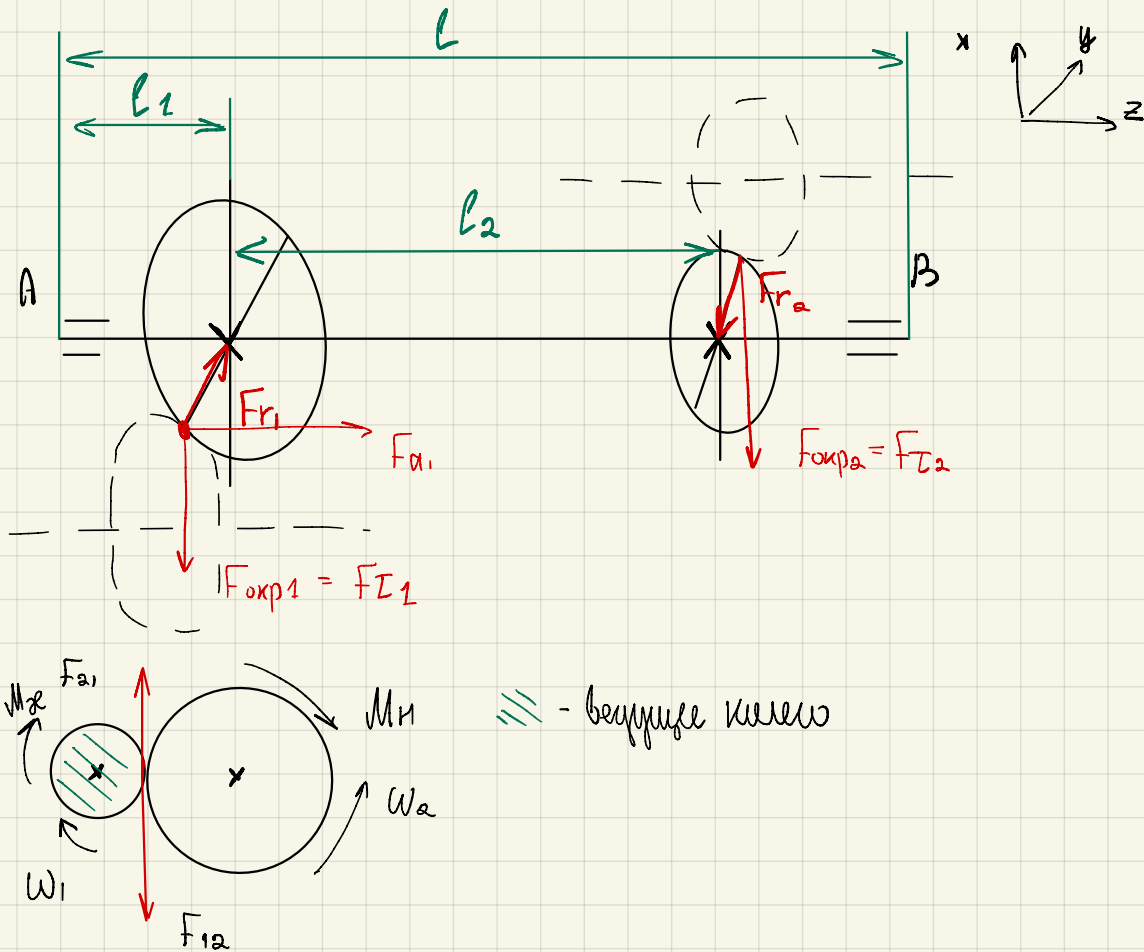 l
x
y
z
l1
l2
A
B
Fr1
Fr2
Fa1
Fокр2 = Fτ2
Fокр1 = Fτ1
F21
Mж
Mн
- ведущее колесо
ω2
ω1
F12